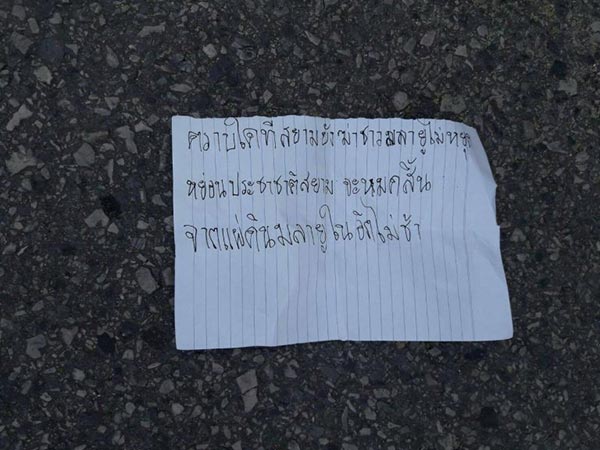 ตราบใดที่สยามยังฆ่าชาวมลายูไม่หยุด
หย่อนประชาชาติสยาม จะหมดสิ้น
จากแผ่ดินมลายูในอีกไม่ช้า